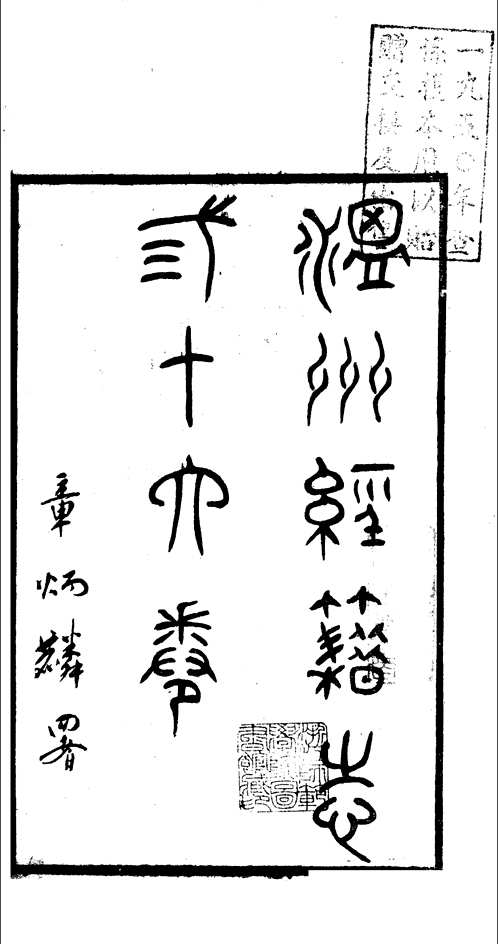 一九五〇年查
溫州經籍志
弎十六卷
章炳麟署